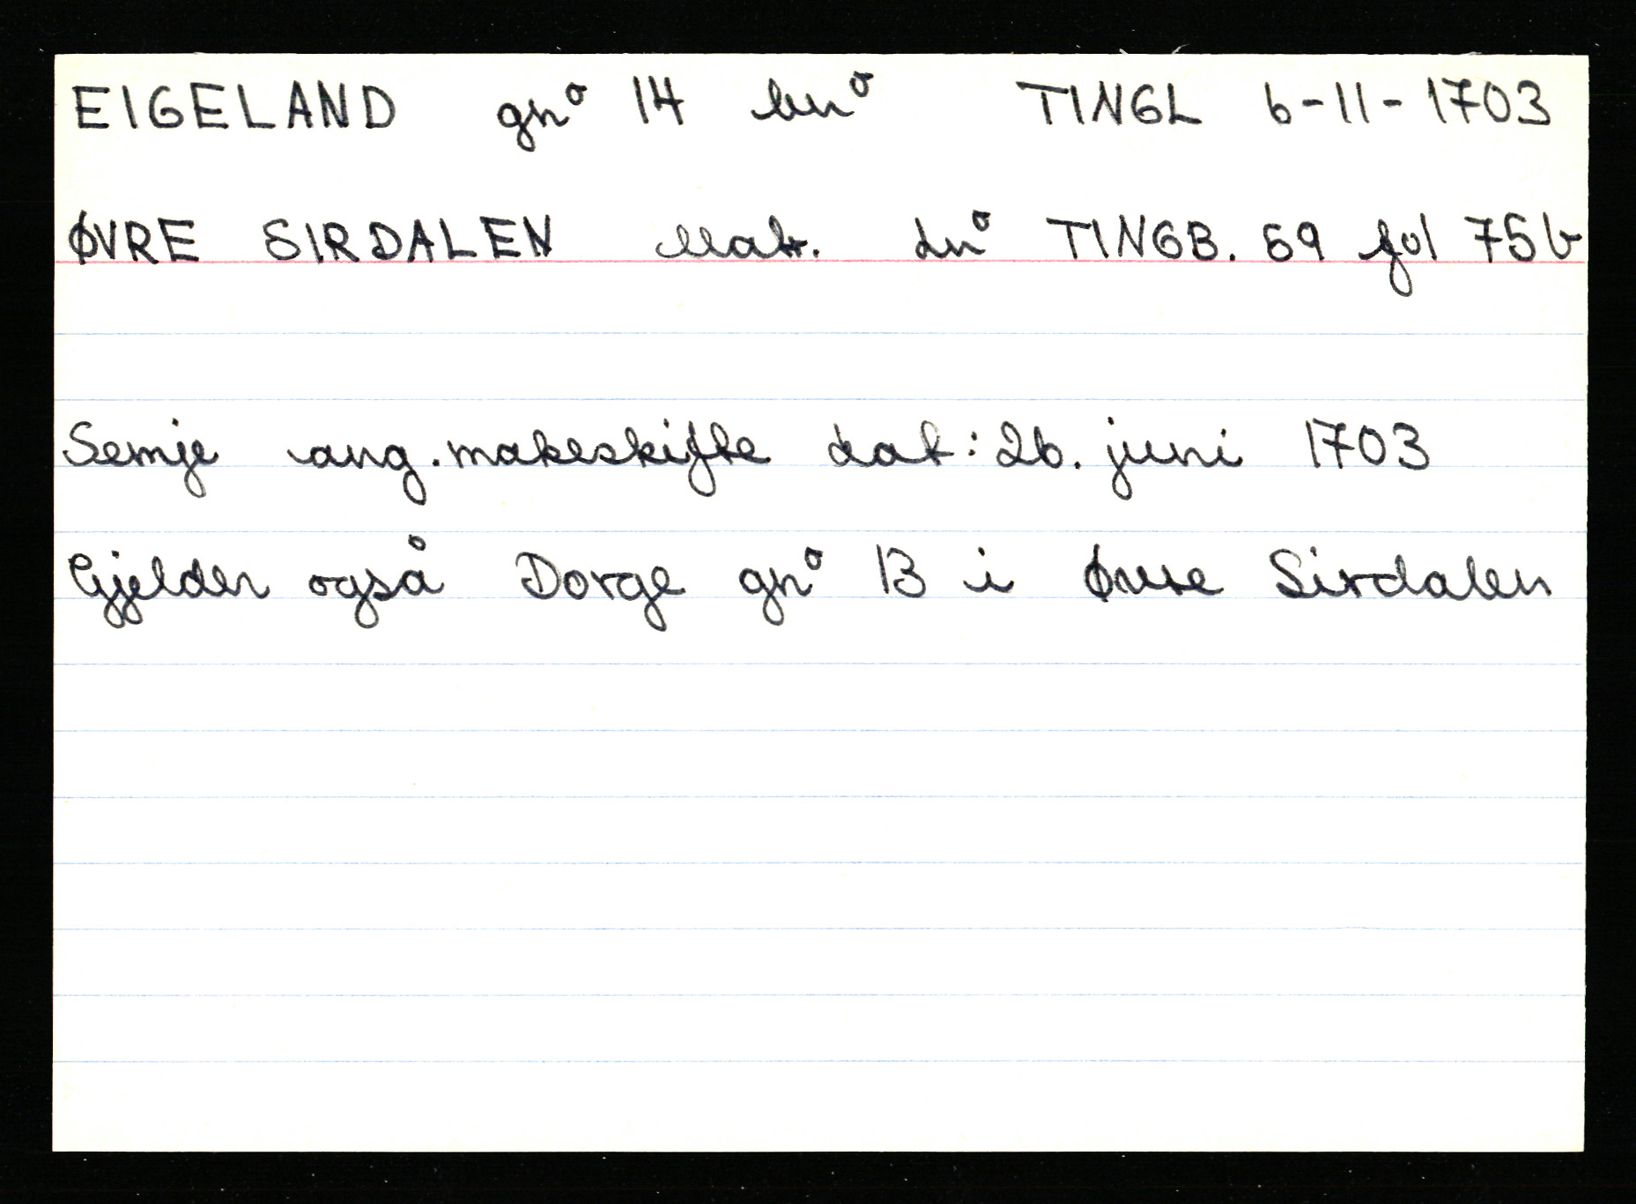 EIGELAND gnº 14 bnº TINGL 6-11-1703
ØVRE SIRDALEN Matr. lnº TINGB. 59 fol 75b
Semje ang. makeskifte dat: 26. juni 1703
Gjelder også Dorge gnº 13 i Øvre Sirdalen